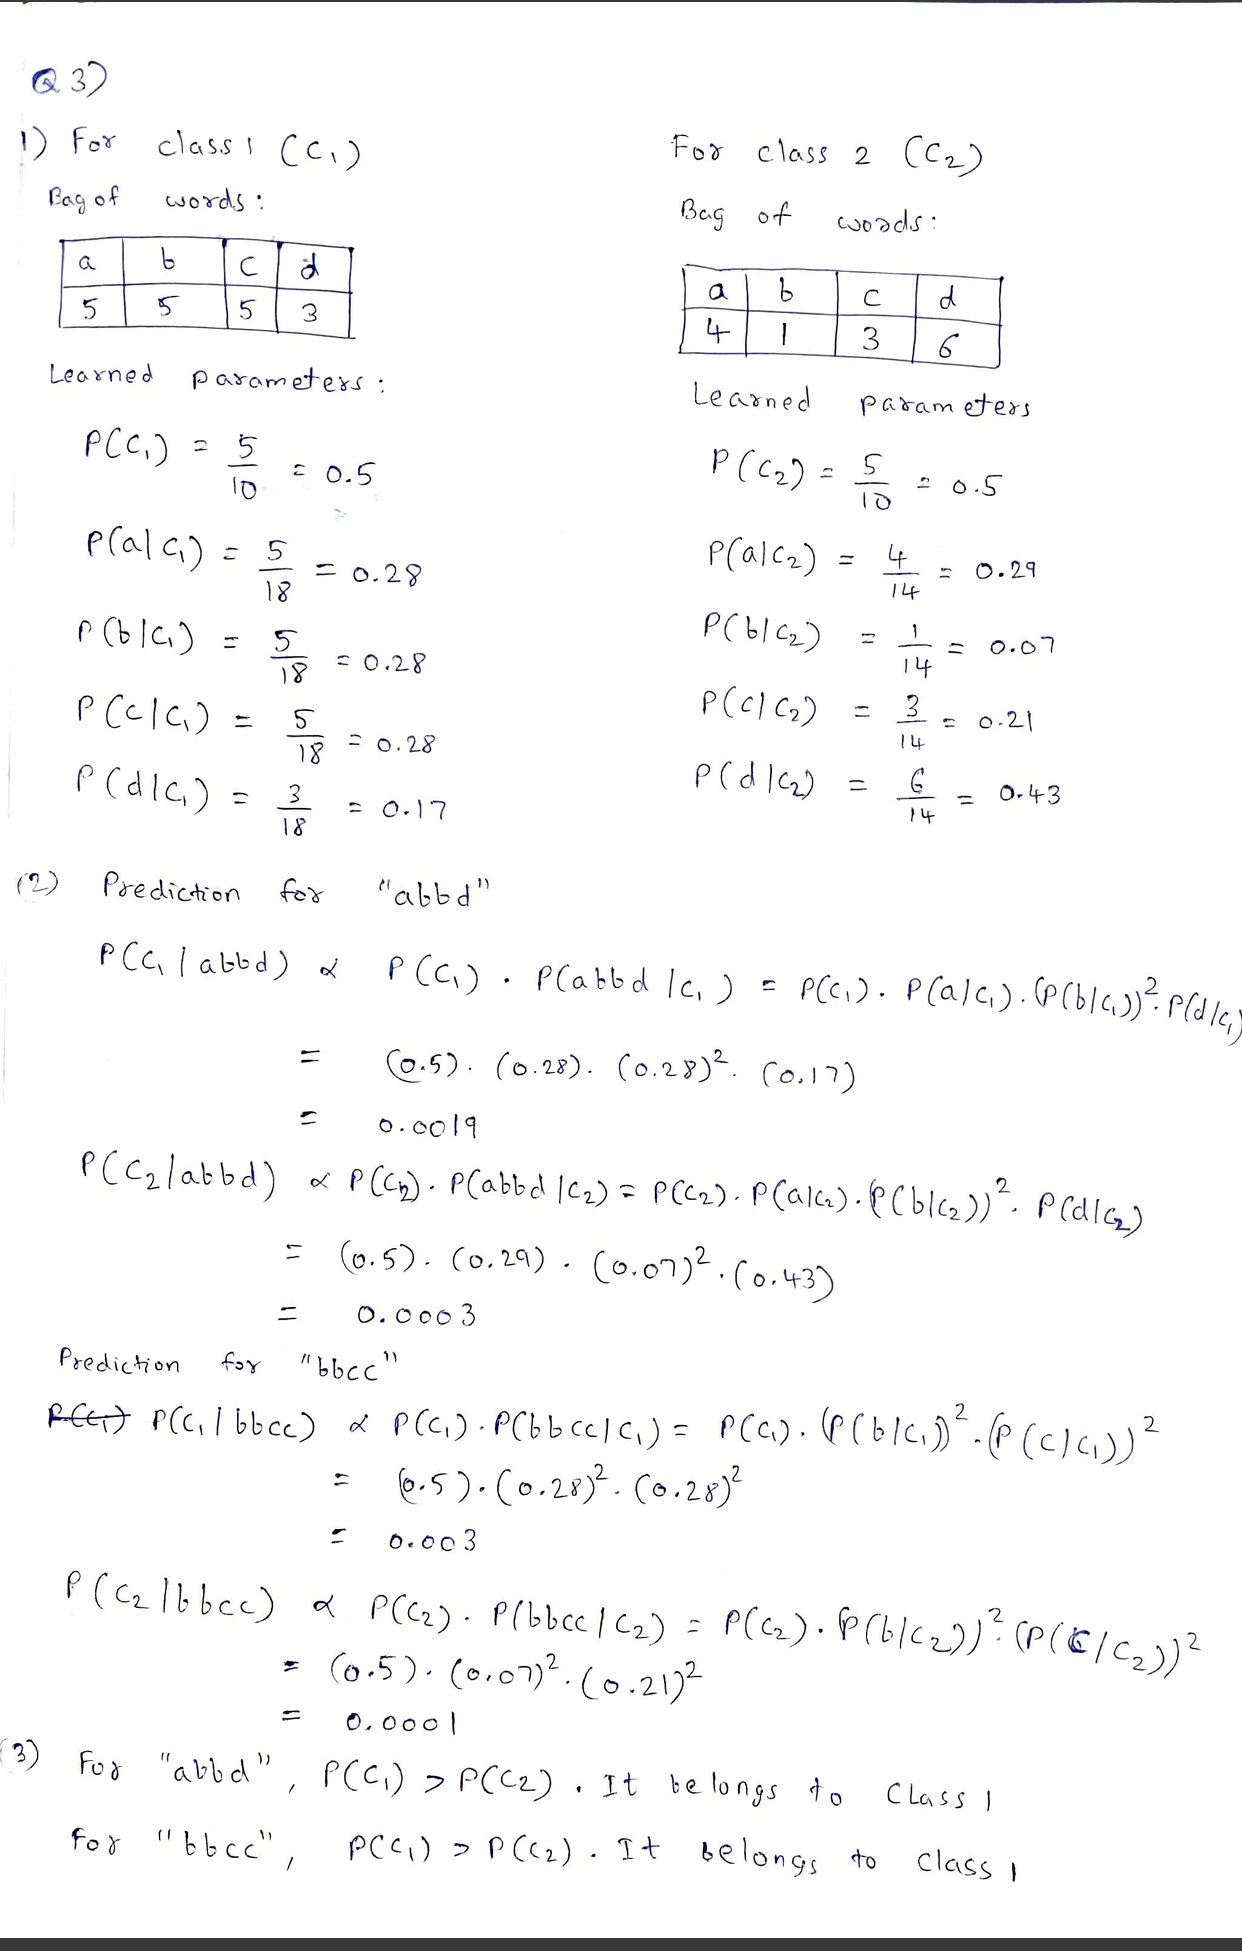 Q 3)
1) For class 1 (C₁)
Bag of words :
a b c d
5 5 5 3
Learned parameters :
P(C₁) = 5/10 = 0.5
P(a|C₁) = 5/18 = 0.28
P(b|C₁) = 5/18 = 0.28
P(c|C₁) = 5/18 = 0.28
P(d|C₁) = 3/18 = 0.17
For class 2 (C₂)
Bag of words :
a b c d
4 1 3 6
Learned parameters
P(C₂) = 5/10 = 0.5
P(a|C₂) = 4/14 = 0.29
P(b|C₂) = 1/14 = 0.07
P(c|C₂) = 3/14 = 0.21
P(d|C₂) = 6/14 = 0.43
(2) Prediction for "abbd"
P(C₁|abbd) ∝ P(C₁) . P(abbd|C₁) = P(C₁) . P(a|C₁) . (P(b|C₁))² . P(d|C₁)
= (0.5) . (0.28) . (0.28)² . (0.17)
= 0.0019
P(C₂|abbd) ∝ P(C₂) . P(abbd|C₂) = P(C₂) . P(a|C₂) . (P(b|C₂))² . P(d|C₂)
= (0.5) . (0.29) . (0.07)² . (0.43)
= 0.0003
Prediction for "bbcc"
P(C₁|bbcc) ∝ P(C₁) . P(bbcc|C₁) = P(C₁) . (P(b|C₁))² . (P(c|C₁))²
= (0.5) . (0.28)² . (0.28)²
= 0.003
P(C₂|bbcc) ∝ P(C₂) . P(bbcc|C₂) = P(C₂) . (P(b|C₂))² . (P(c|C₂))²
= (0.5) . (0.07)² . (0.21)²
= 0.0001
(3) For "abbd", P(C₁) > P(C₂) . It belongs to Class 1
For "bbcc", P(C₁) > P(C₂) . It belongs to class 1